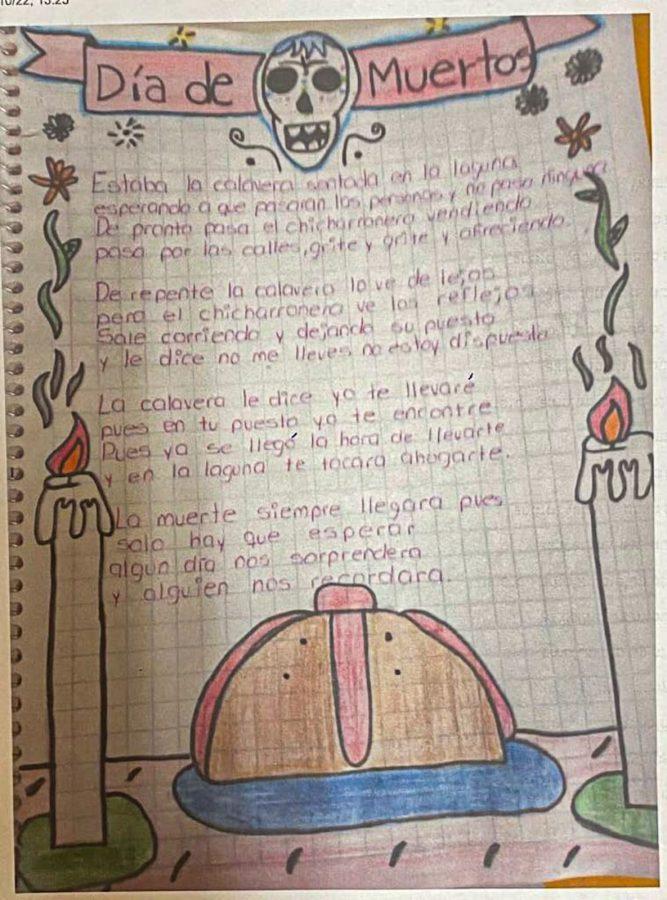 10/22, 13:25
Día de Muertos
Estaba la calavera sentada en la laguna
esperando a que pasaran las personas y no pasa ninguna
De pronto pasa el chicharronero vendiendo
pasa por las calles, grite y grite y ofreciendo.
De repente la calavera lo ve de lejos
pero el chicharronero ve los reflejos
Sale corriendo y dejando su puesto
y le dice no me lleves no estoy dispuesto
La calavera le dice yo te llevaré
pues en tu puesto yo te encontre
Pues ya se llegó la hora de llevarte
y en la laguna te tocara ahogarte.
La muerte siempre llegara pues
solo hay que esperar
algun día nos sorprendera
y alguien nos recordara.